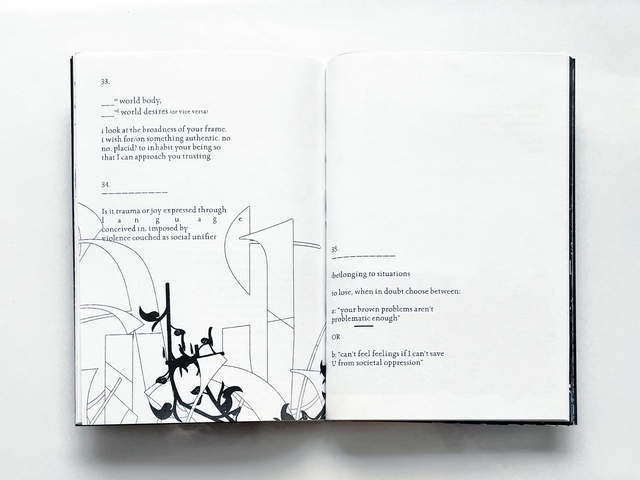 33.
___st world body,
___nd world desires (or vice versa)
i look at the broadness of your frame.
i wish for/on something authentic. no.
no. placid? to inhabit your being so
that I can approach you trusting
34.
___________
Is it trauma or joy expressed through
l a n g u a g e
conceived in, imposed by
violence couched as social unifier
35.
___________
(be)longing to situations
to lose, when in doubt choose between:
a: "your brown problems aren't
problematic enough"
OR
b: "can't feel feelings if I can't save
U from societal oppression"